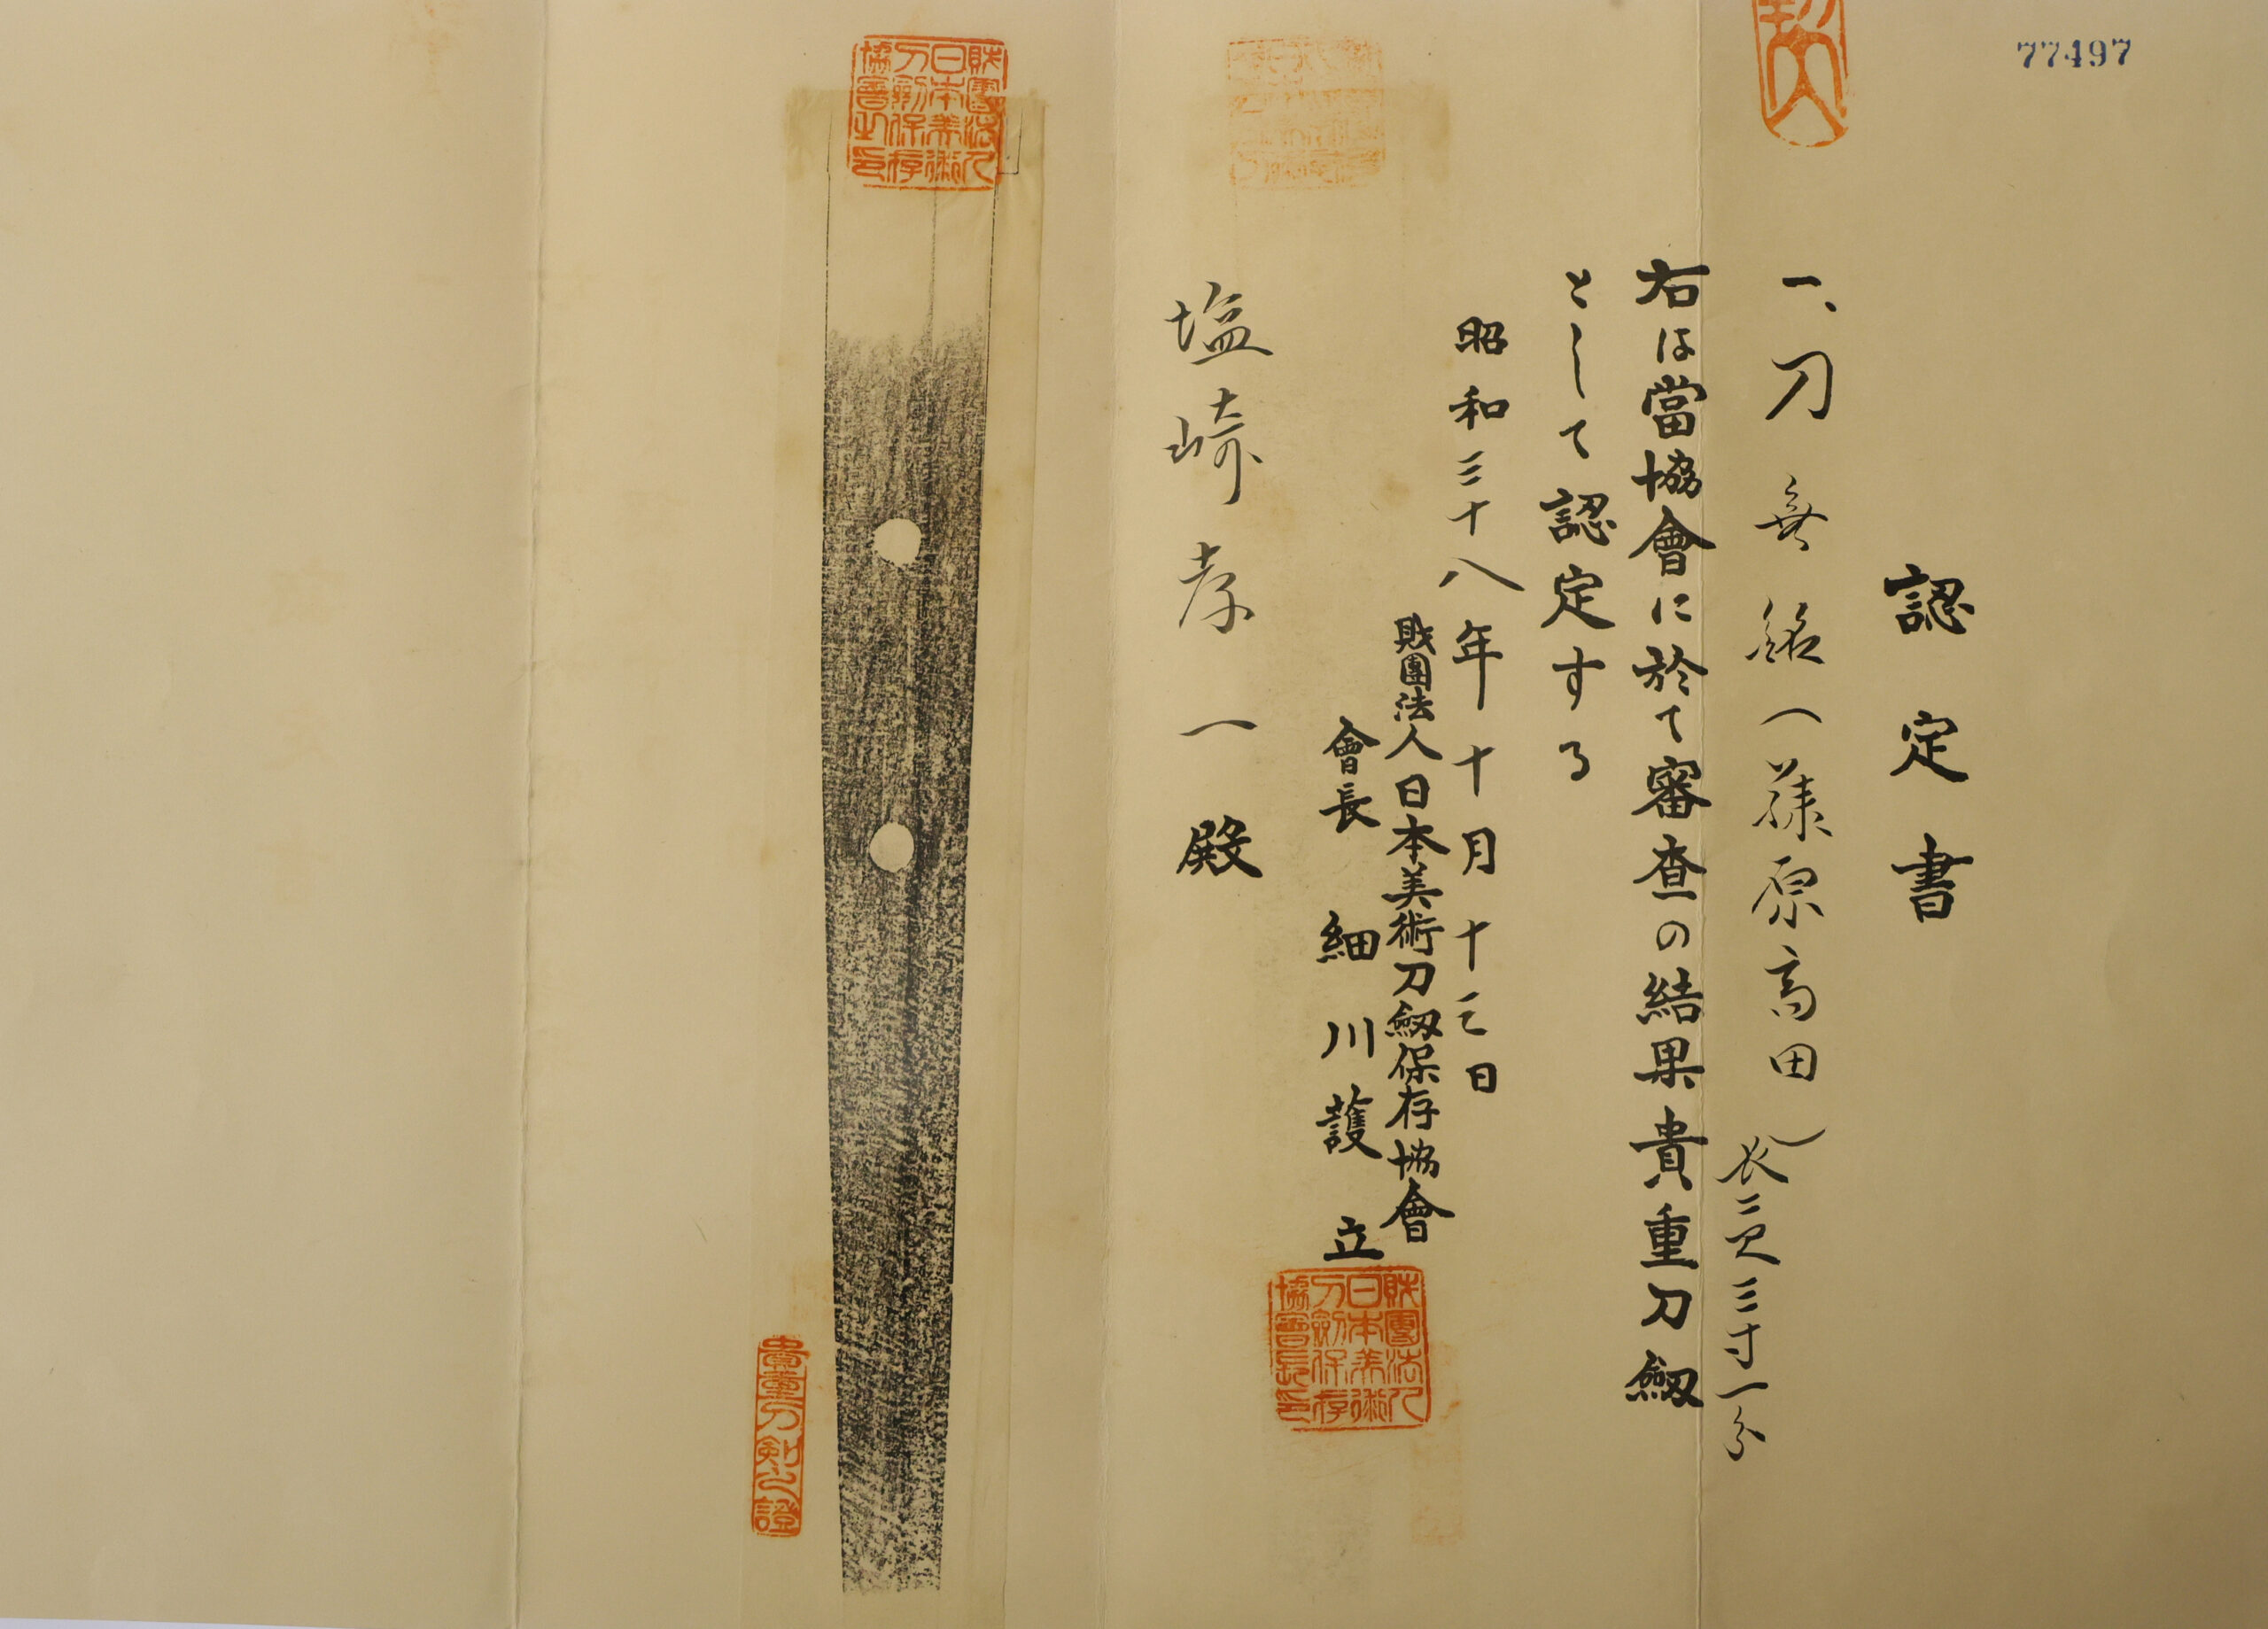 77497
認定書
一、刀 無銘(藤原高田) 長二尺三寸一分
右は當協會に於て審査の結果貴重刀劔
として認定する
昭和三十八年十月十三日
財團法人日本美術刀劔保存協會
會長 細川護立
財團法人日本美術刀劍保存協會長印
塩崎孝一殿
財團法人日本美術刀劍保存協會之印
貴重刀剣之證